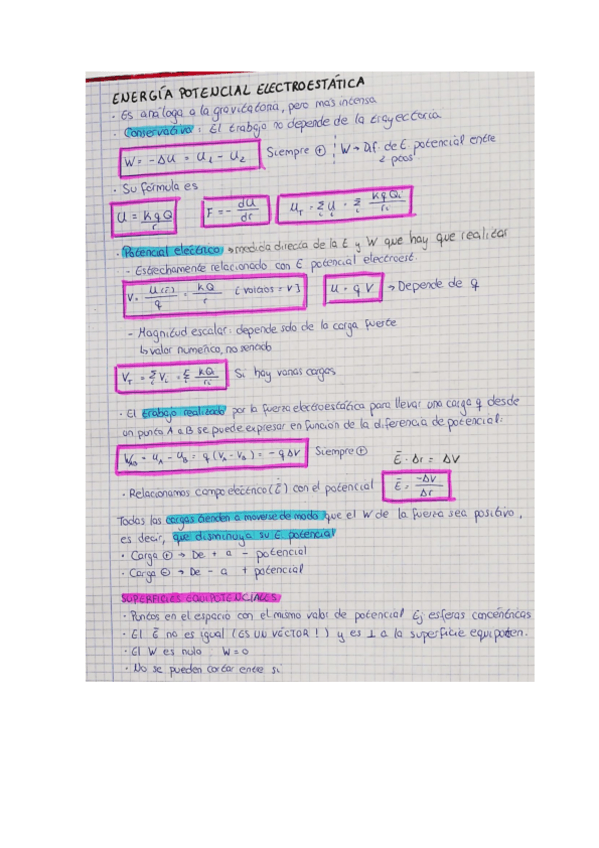 ENERGÍA POTENCIAL ELECTROESTÁTICA
· Es análoga a la gravitatoria, pero mas intensa
· Conservativa: El trabajo no depende de la trayectoria
W = -ΔU = U₁ - U₂ Siempre ⊕ W → Dif. de E potencial entre
2 ptos
· Su fórmula es
U = KqQ/r F = - dU/dr U_T = Σ U = Σ KqQi/ri
· Potencial electrico → medida directa de la E y W que hay que realizar
- Estrechamente relacionado con E potencial electroest.
V = U(r)/q = KQ/r [voltios = V] U = qV → Depende de q
- Magnitud escalar: depende solo de la carga fuente
↳ valor numerico, no sentido
V_T = Σ Vi = Σ KQ/ri Si hay varias cargas
· El trabajo realizado por la fuerza electroestática para llevar una carga q desde
un punto A a B se puede expresar en función de la diferencia de potencial:
W_AB = U_A - U_B = q (V_A - V_B) = -qΔV Siempre ⊕
E̅ · Δr = ΔV
· Relacionamos campo electrico (E̅) con el potencial E̅ = -ΔV/Δr
Todas las cargas tienden a moverse de modo que el W de la fuerza sea positivo,
es decir, que disminuya su E potencial
· Carga ⊕ → De + a - potencial
· Carga ⊖ → De - a + potencial
SUPERFICIES EQUIPOTENCIALES
· Puntos en el espacio con el mismo valor de potencial Ej esferas concéntricas
· El E̅ no es igual (ES UN VECTOR!) y es ⊥ a la superficie equipoten.
· El W es nulo W=0
· No se pueden cortar entre si